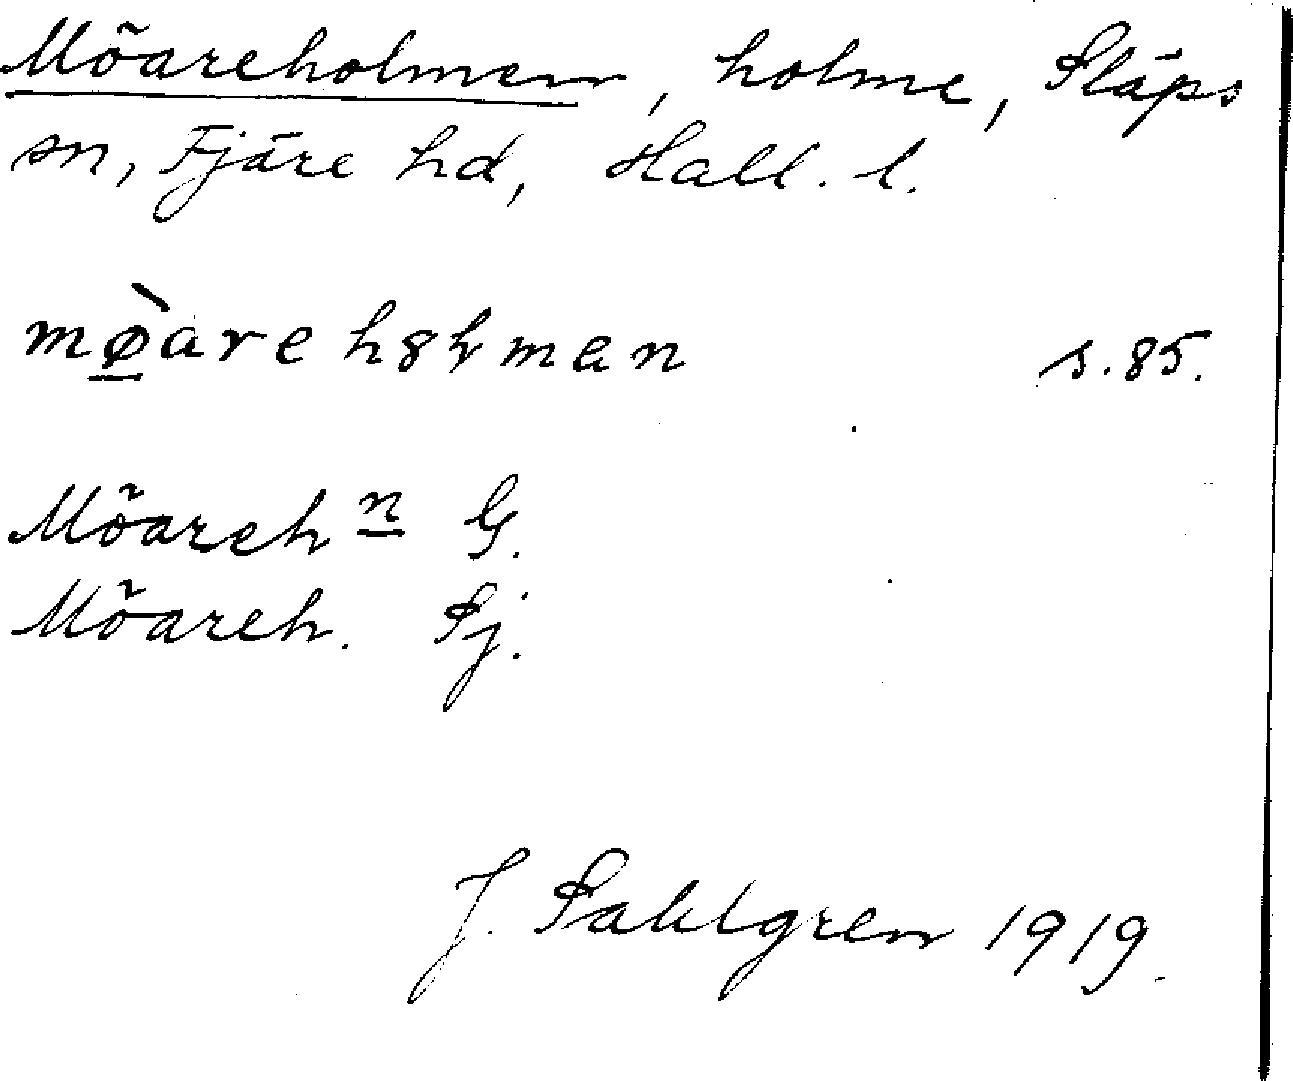 Möareholmen, holme, Släps
sn, Fjäre hd, Hall. l.
mø̲̀are hȣⱡmen s.85.
Möareh n̲ G.
Möareh. Sj.
J. Sahlgren 1919.